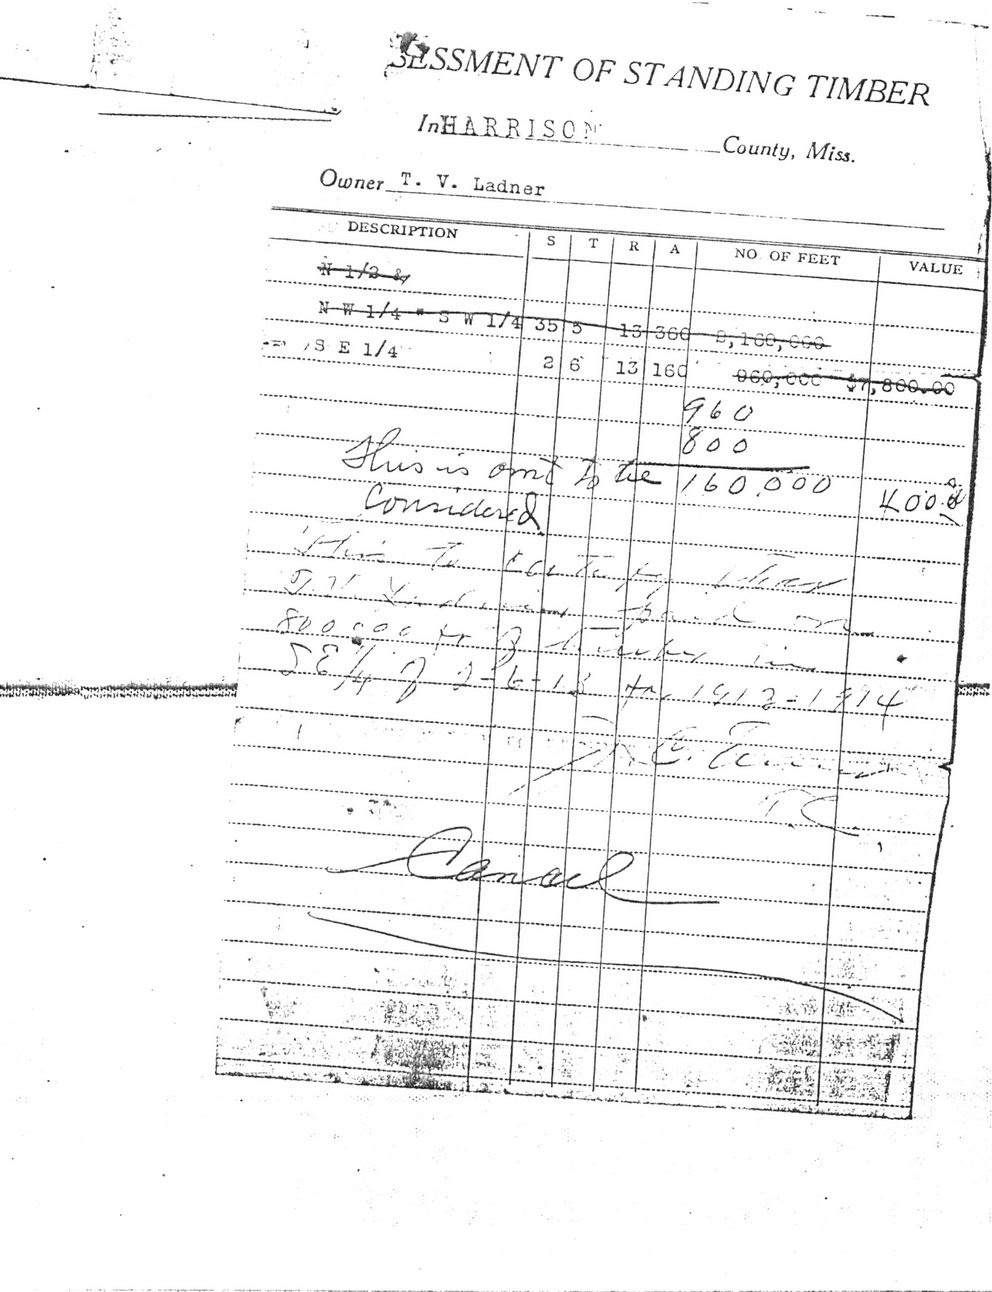 SESSMENT OF STANDING TIMBER
In HARRISON County, Miss.
Owner T. V. Ladner
DESCRIPTION S T R A NO. OF FEET VALUE
N 1/2 &
N W 1/4 " S W 1/4 35 5 13 360 2,160,000
S E 1/4 2 6 13 160 960,000 $7,800.00
960
800
This is amt to be 160,000 400.00
Considered
This to certify that
T. V. Ladner paid on
800000 ft of timber in
SE 1/4 of 2-6-13 for 1913-1914
T.C.
Cancel